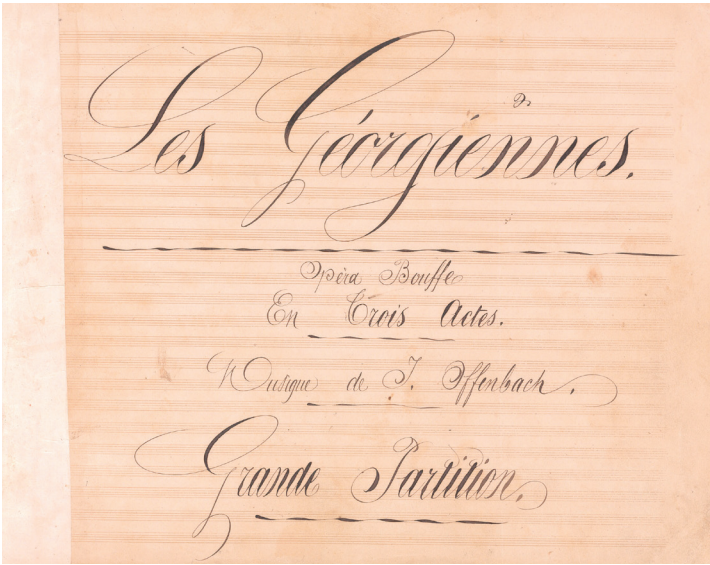 Les Géorgiennes.
Opéra Bouffe
En Trois Actes.
Musique de J. Offenbach.
Grande Partition.